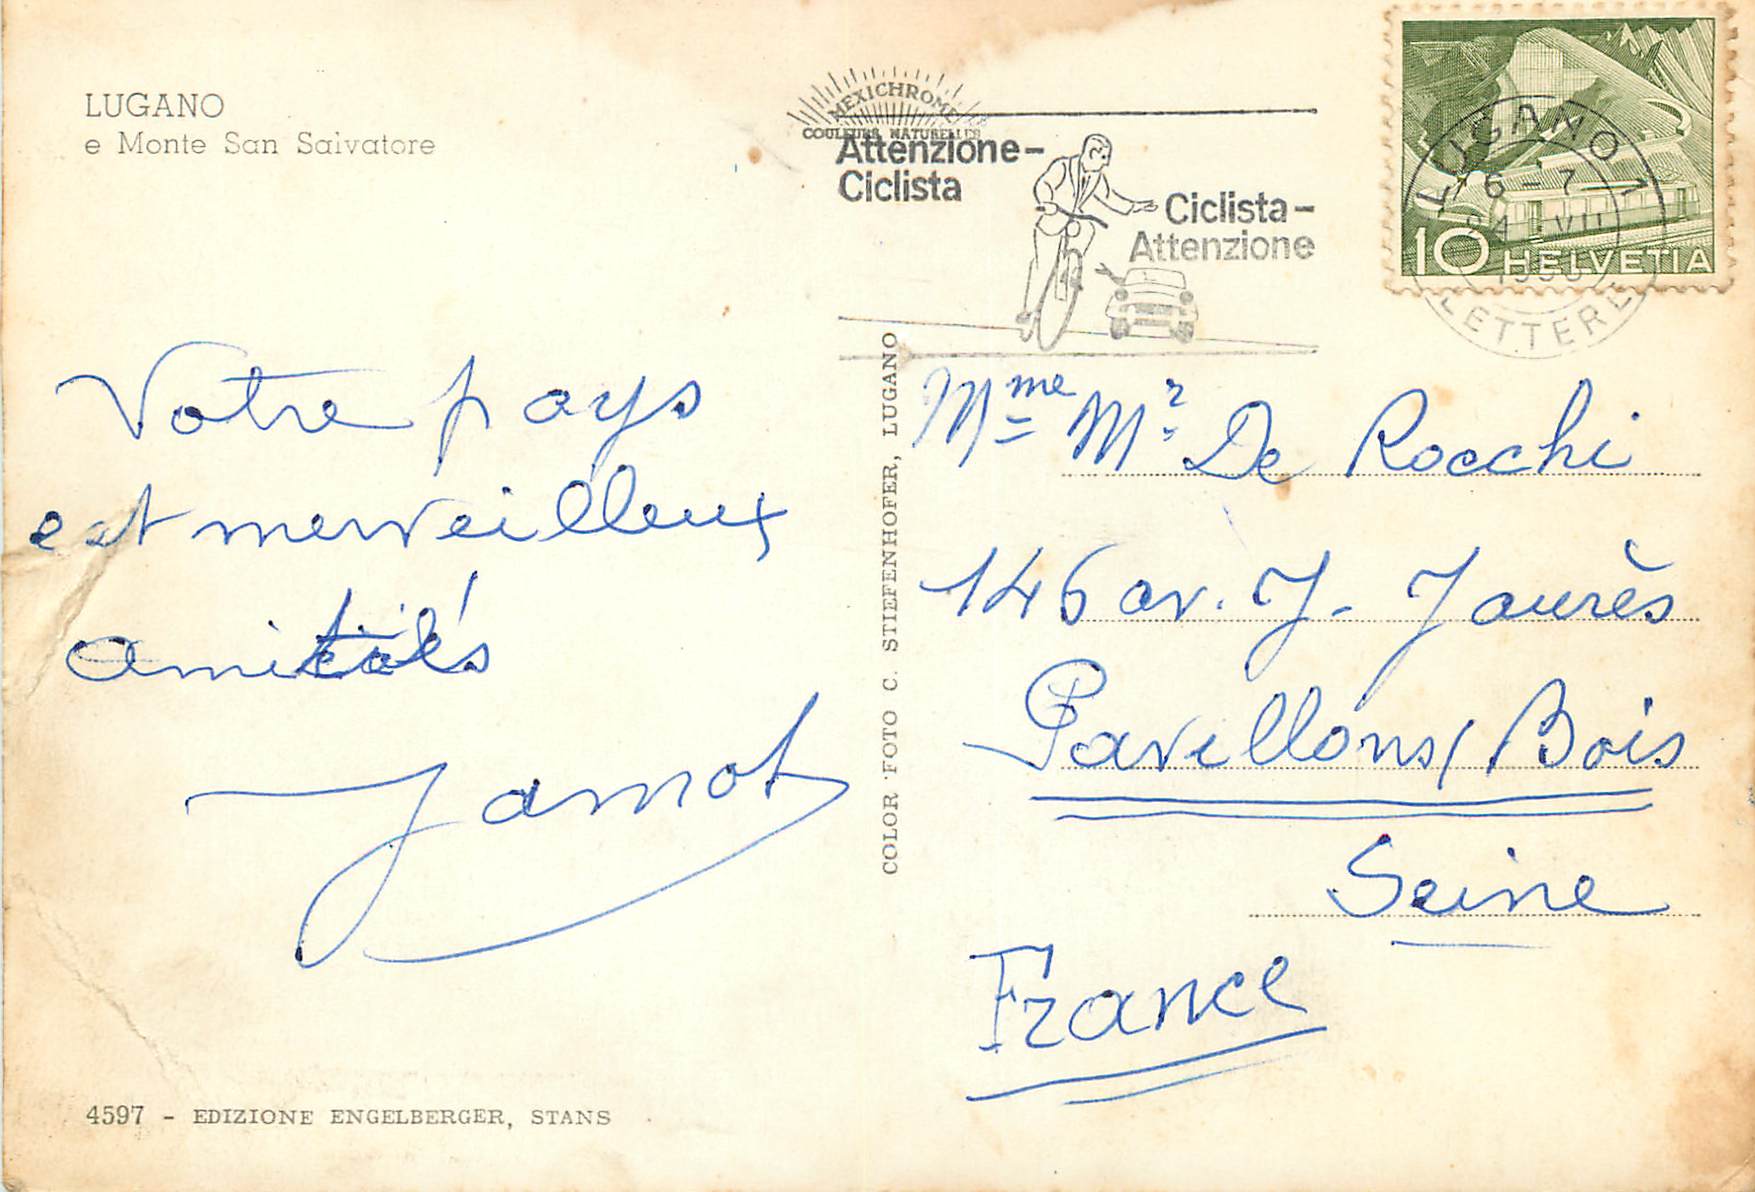 LUGANO
e Monte San Salvatore
MEXICHROME
COULEURS NATURELLES
Attenzione-
Ciclista
Ciclista-
Attenzione
LUGANO 1
6-7
VII
LETTERE
10 HELVETIA
Votre pays
est merveilleux
amitiés
Jamot
COLOR FOTO C. STIEFENHOFER, LUGANO
Mme Mr De Rocchi
146 av. J. Jaurès
Pavillons/Bois
Seine
France
4597 - EDIZIONE ENGELBERGER, STANS